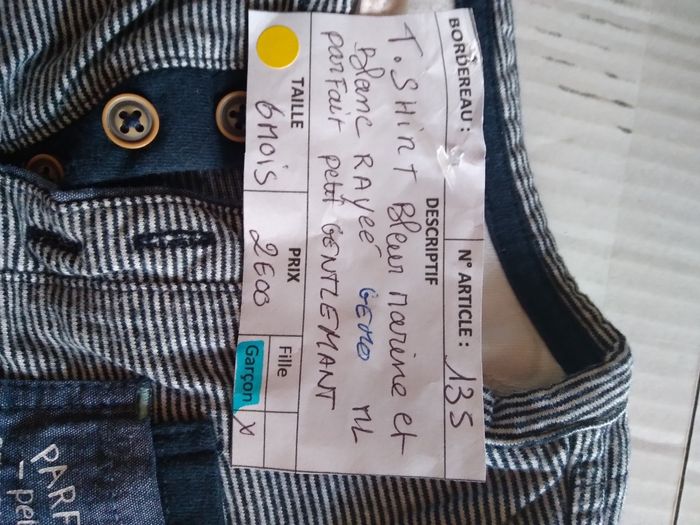 BORDEREAU : N° ARTICLE : 135
DESCRIPTIF
T.SHirt Bleu marine et
Blanc RAYEE GEMO ML
parFait petit GENTLEMANT
TAILLE PRIX Fille
6 MOIS 2E00 Garçon X
PARF
pe